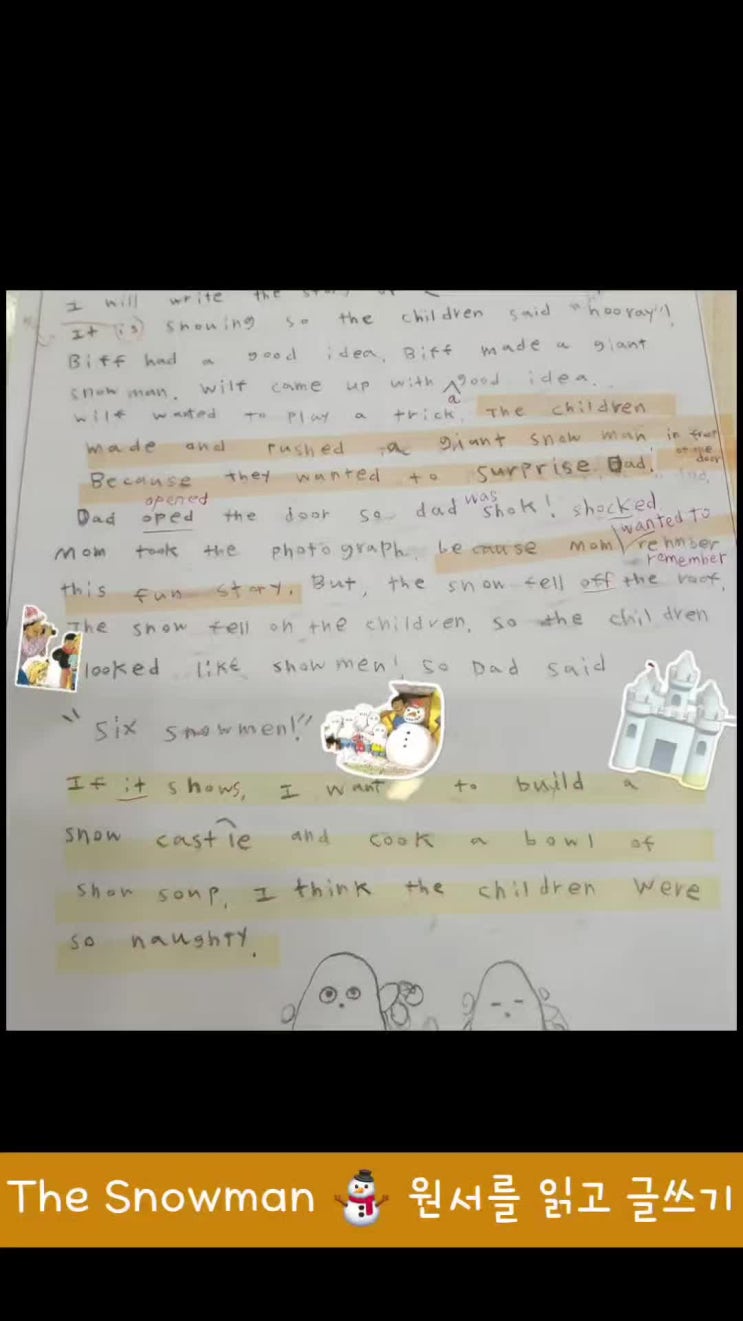 I will write the story of
It is snowing so the children said "hooray"!
Biff had a good idea. Biff made a giant
snow man. Wilf came up with a good idea.
Wilf wanted to play a trick. The children
made and pushed a giant snow man in front
of the door
Because they wanted to surprise Dad.
opened
was
Dad oped the door so dad shok! shocked
wanted to
Mom took the photograph. because mom rehmber
remember
this fun story. But, the snow fell off the roof.
The snow fell on the children. so the children
looked like snowmen! so Dad said
"six snowmen!"
If it snows, I want to build a
snow castle and cook a bowl of
snow soup. I think the children were
so naughty.
The Snowman ⛄ 원서를 읽고 글쓰기